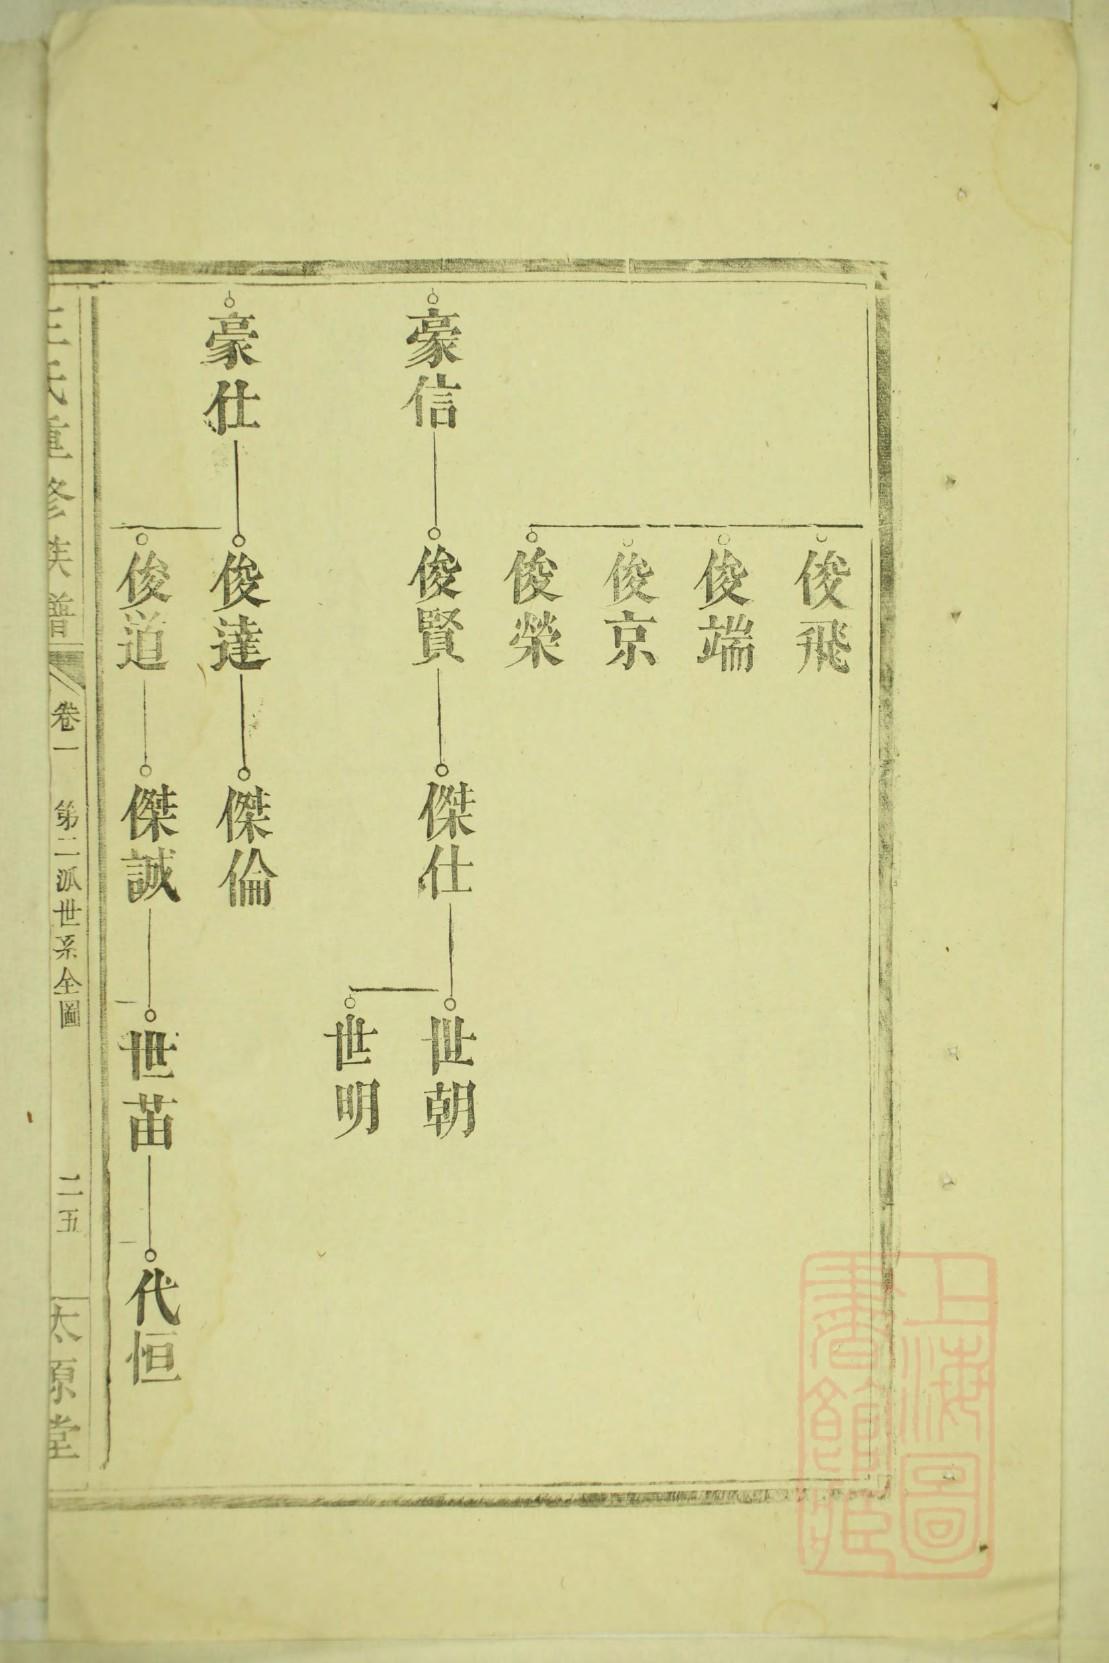 俊飛
俊端
俊京
俊榮
豪信
俊賢
傑仕
世朝
世明
豪仕
俊達
傑倫
俊道
傑誠
世苗
代恒
王氏重修族譜
卷一
第二派世系全圖
二五
太原堂
上海圖書館藏